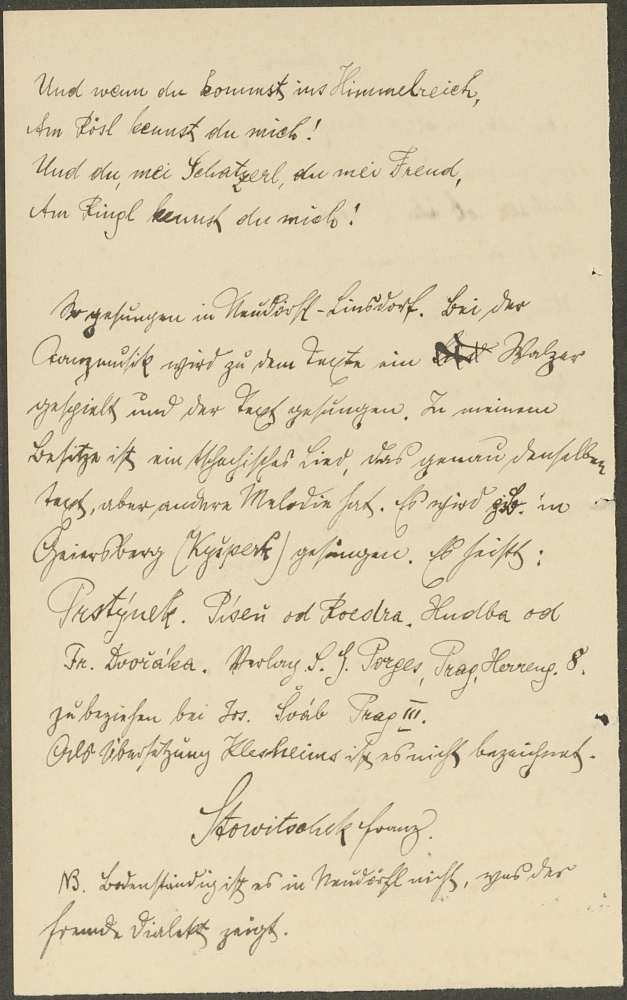 Und wenn du kommst ins Himmelreich,
Am Rösl kennst du mich!
Und du, mei Schatzerl, du mei Freud,
Am Ringl kennst du mich!
So gesungen in Neudörfl-Linsdorf. Bei der
Tanzmusik wird zu dem Texte ein Walzer
gespielt und der Text gesungen. In meinem
Besitze ist ein tschechisches Lied, das genau denselben
Text, aber andere Melodie hat. Es wird z.B. in
Geiersberg (Kyšperk) gesungen. Es heißt:
Prstýnek. Píseň od Roedra. Hudba od
Fr. Dvořáka. Verlag S. J. Porges, Prag, Herreng. 8.
zu beziehen bei Jos. Šváb Prag III.
Als Übersetzung Klesheims ist es nicht bezeichnet.
Stowitschek Franz.
NB. Bodenständig ist es in Neudörfl nicht, was der
fremde Dialekt zeigt.